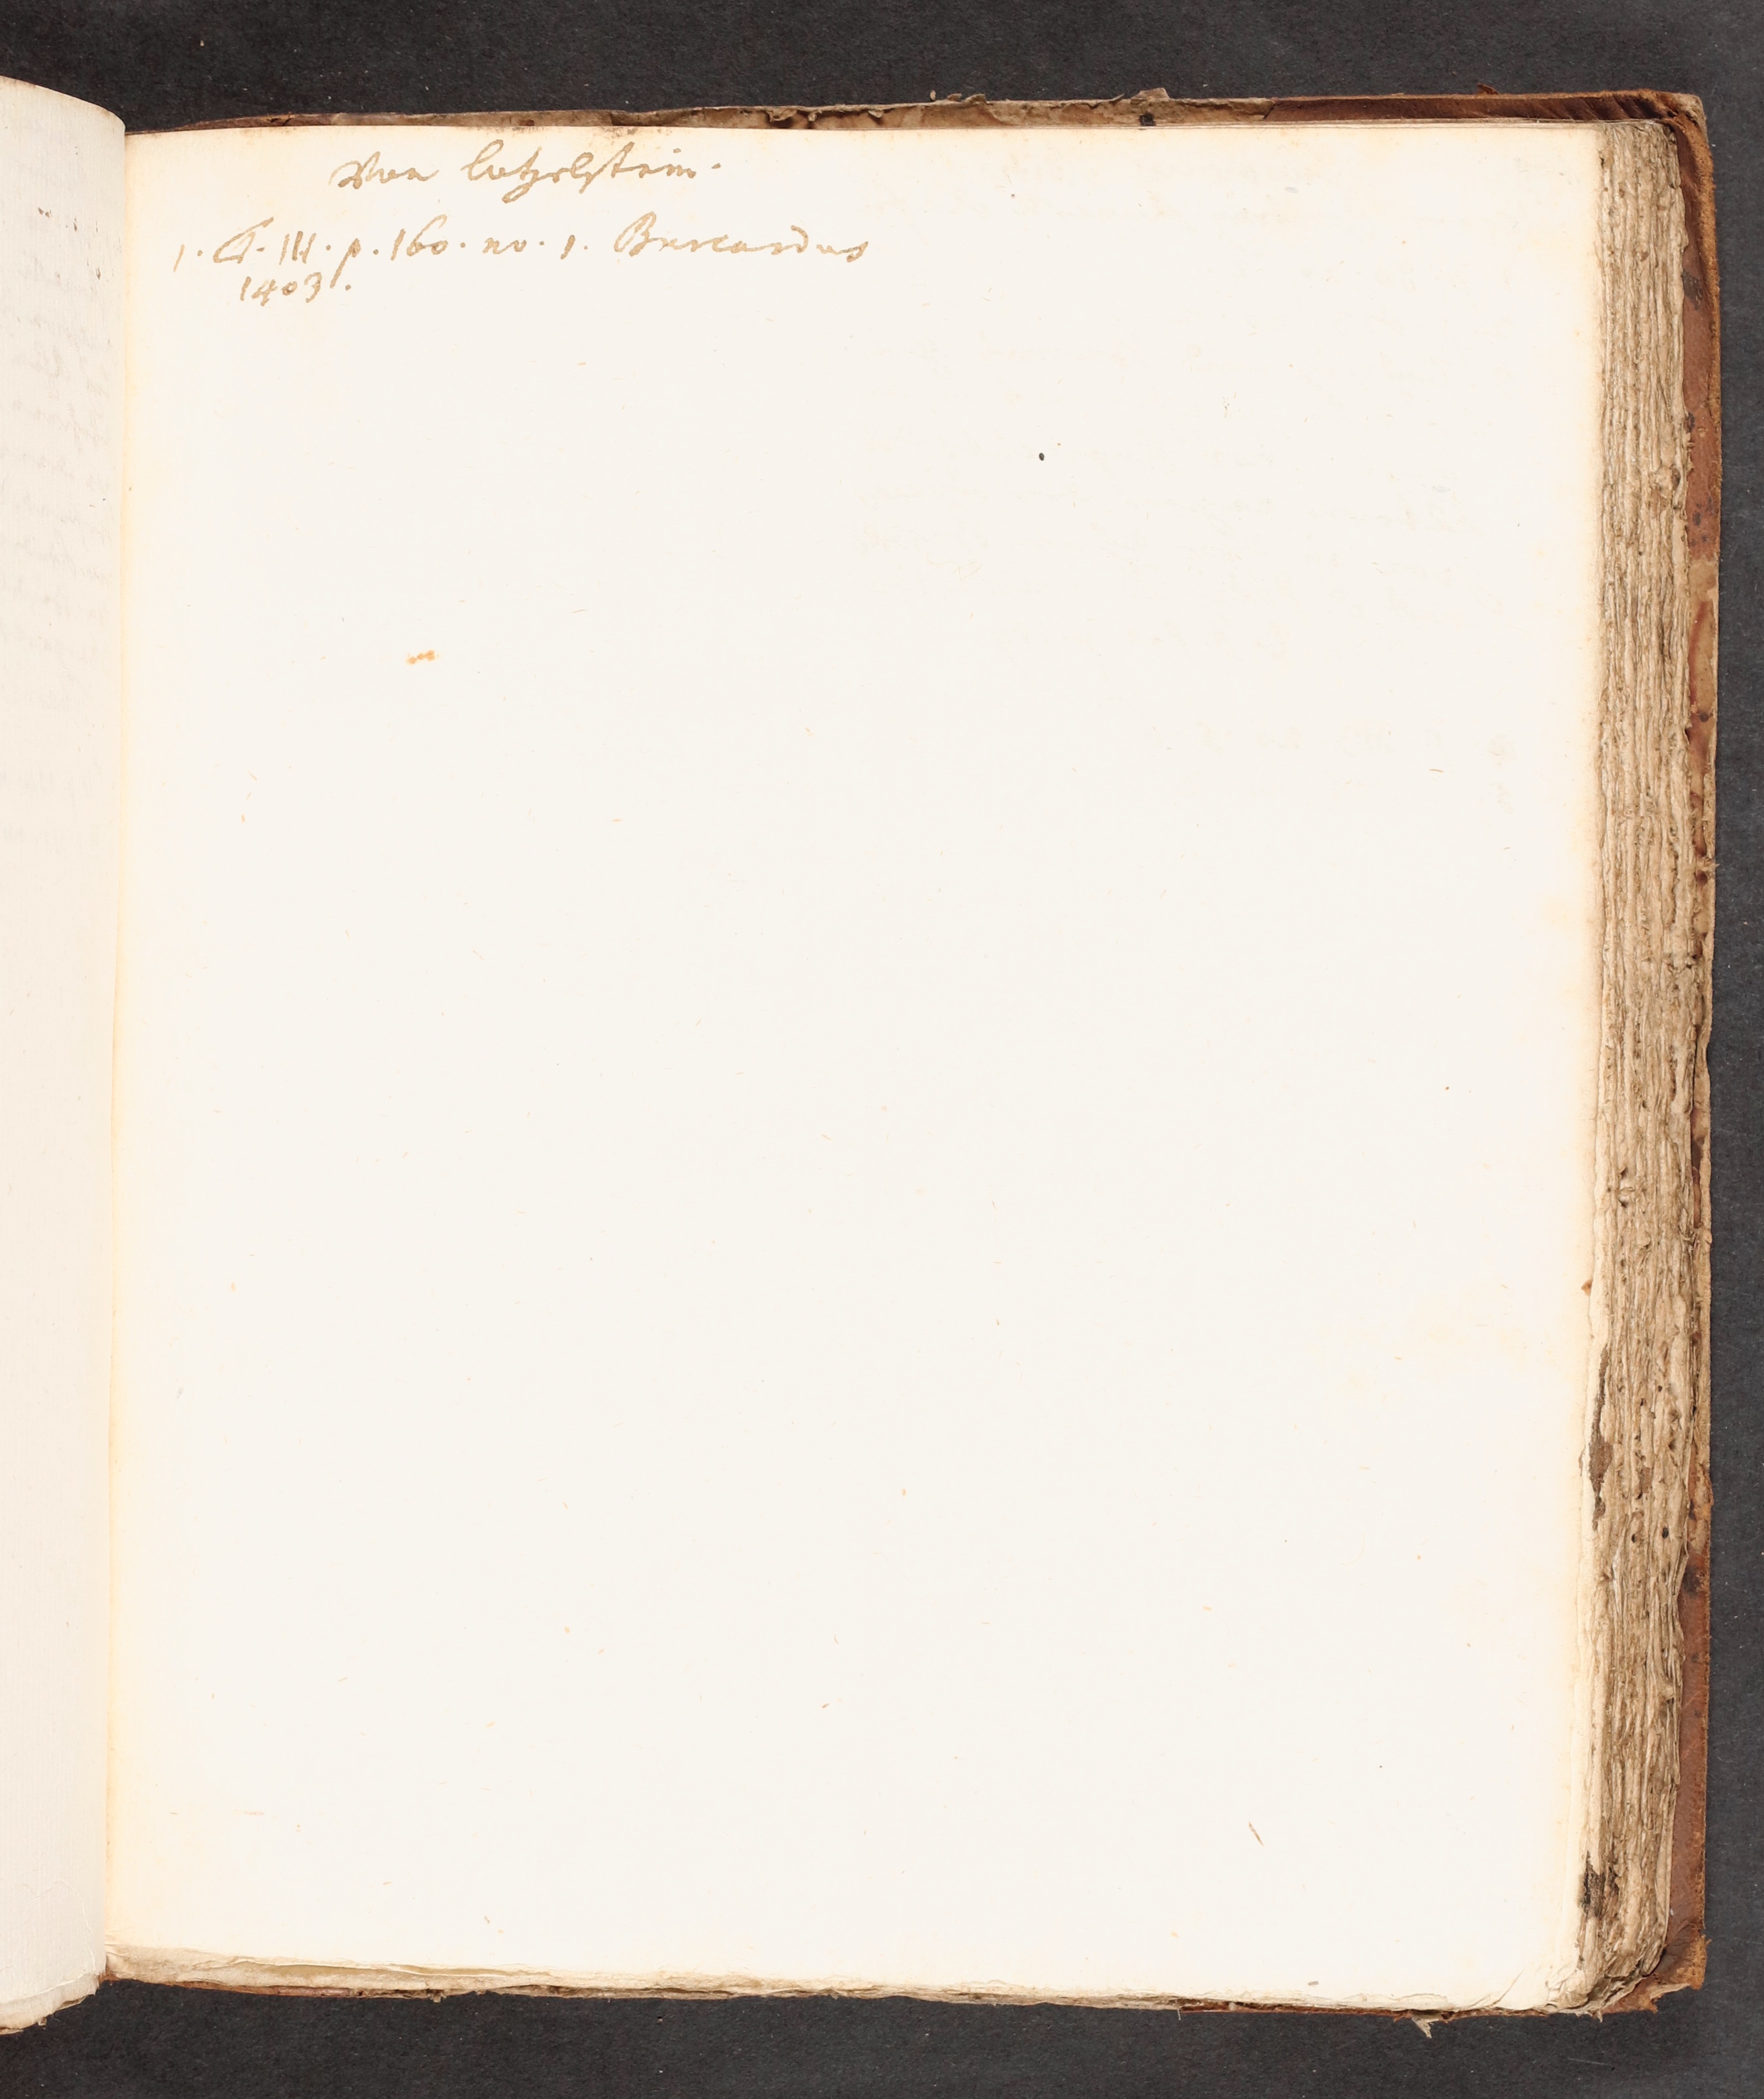 Von lotzelstein.
1. C. III. p. 160. no. 1. Burcardus
1403.